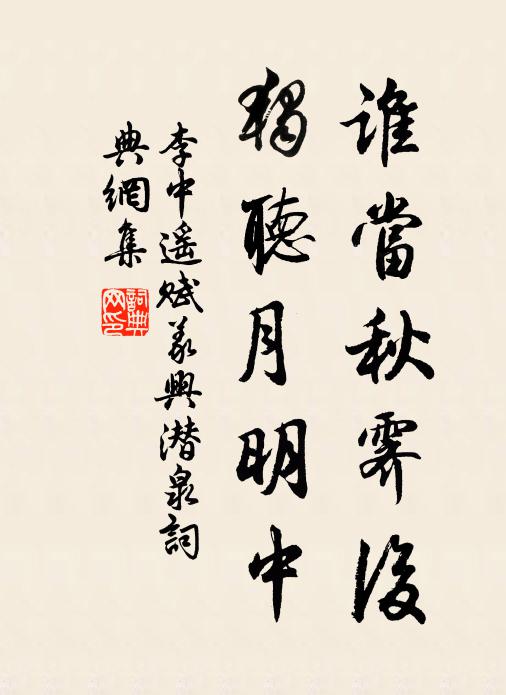 誰當秋霽後
獨聽月明中
李中遥賦義興潜泉詞
典網集
詞典網印